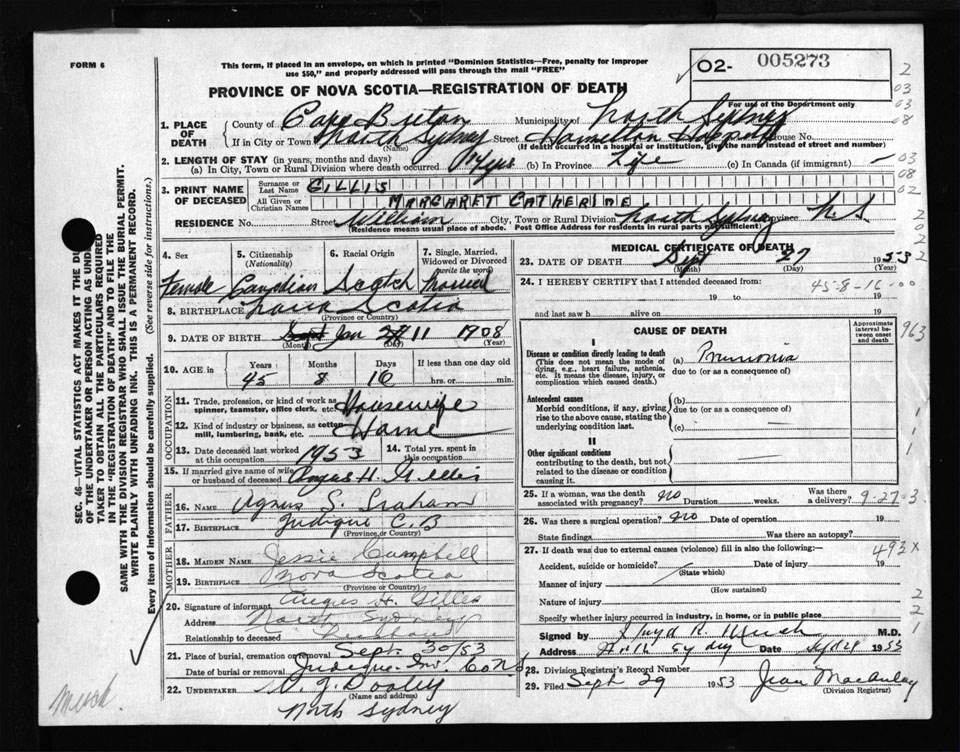 FORM 6
This form, if placed in an envelope, on which is printed "Dominion Statistics—Free, penalty for improper
use $50," and properly addressed will pass through the mail "FREE"
02- 005273
For use of the Department only
PROVINCE OF NOVA SCOTIA—REGISTRATION OF DEATH
1. PLACE OF DEATH
County of Cape Breton Municipality of North Sydney
If in City or Town North Sydney Street Hamilton House No.
(Name) (If death occurred in a hospital or institution, give the name instead of street and number)
2. LENGTH OF STAY (in years, months and days)
(a) In City, Town or Rural Division where death occurred yrs (b) In Province Life (c) In Canada (if immigrant) —
3. PRINT NAME OF DECEASED
Surname or Last Name GILLIS
All Given or Christian Names MARGARET CATHERINE
RESIDENCE No. Street William City, Town or Rural Division North Sydney Province N.S.
(Residence means usual place of abode. Post Office Address for residents in rural parts not sufficient)
4. Sex
Female
5. Citizenship (Nationality)
Canadian
6. Racial Origin
Scotch
7. Single, Married, Widowed or Divorced (write the word)
Married
8. BIRTHPLACE Nova Scotia
(Province or Country)
9. DATE OF BIRTH Jan 11 1908
(Month) (Day) (Year)
10. AGE IN Years Months Days If less than one day old
45 8 16 hrs. or min.
OCCUPATION
11. Trade, profession, or kind of work as spinner, teamster, office clerk, etc. Housewife
12. Kind of industry or business, as cotton mill, lumbering, bank, etc. Home
13. Date deceased last worked at this occupation 1953
14. Total yrs. spent in this occupation
15. If married give name of wife or husband of deceased Angus H. Gillis
FATHER
16. NAME Agnus S. Graham
17. BIRTHPLACE Judique C.B
(Province or Country)
MOTHER
18. MAIDEN NAME Jessie Campbell
19. BIRTHPLACE Nova Scotia
(Province or Country)
20. Signature of informant Angus H. Gillis
Address North Sydney
Relationship to deceased Husband
21. Place of burial, cremation or removal Sept. 30/53
Date of burial or removal Judique. Inv. Co N.S
22. UNDERTAKER J. Dooley
(Name and address)
North Sydney
MEDICAL CERTIFICATE OF DEATH
23. DATE OF DEATH Sept 27 1953
(Month) (Day) (Year)
24. I HEREBY CERTIFY that I attended deceased from:
45-8-16-00
19 to 19
and last saw h alive on 19
CAUSE OF DEATH
Approximate interval between onset and death
I
Disease or condition directly leading to death (a) Pneumonia
(This does not mean the mode of dying, e.g., heart failure, asthenia, etc. It means the disease, injury, or complication which caused death.)
due to (or as a consequence of)
Antecedent causes
Morbid conditions, if any, giving rise to the above cause, stating the underlying condition last.
(b)
due to (or as a consequence of)
(c)
II
Other significant conditions
contributing to the death, but not related to the disease or condition causing it.
25. If a woman, was the death associated with pregnancy? no Duration weeks. Was there a delivery? 9-27-3
26. Was there a surgical operation? no Date of operation 19
State findings Was there an autopsy?
27. If death was due to external causes (violence) fill in also the following:—
493x
Accident, suicide or homicide? Date of injury 19
(State which)
Manner of injury
(How sustained)
Nature of injury
Specify whether injury occurred in industry, in home, or in public place
Signed by Lloyd R. Hirsch M.D.
Address North Sydney Date 1953
28. Division Registrar's Record Number
29. Filed Sept 29 1953 Jean MacAulay
(Division Registrar)
SEC. 46—VITAL STATISTICS ACT MAKES IT THE DU
OF THE UNDERTAKER OR PERSON ACTING AS UNDE
TAKER TO OBTAIN ALL THE PARTICULARS REQUIRED
IN THE "REGISTRATION OF DEATH" AND TO FILE THE
SAME WITH THE DIVISION REGISTRAR WHO SHALL ISSUE THE BURIAL PERMIT.
WRITE PLAINLY WITH UNFADING INK. THIS IS A PERMANENT RECORD.
Every item of information should be carefully supplied. (See reverse side for instructions.)
2
03
03
08
03
08
02
2
0
2
2
963
1
1
1
2
2
1